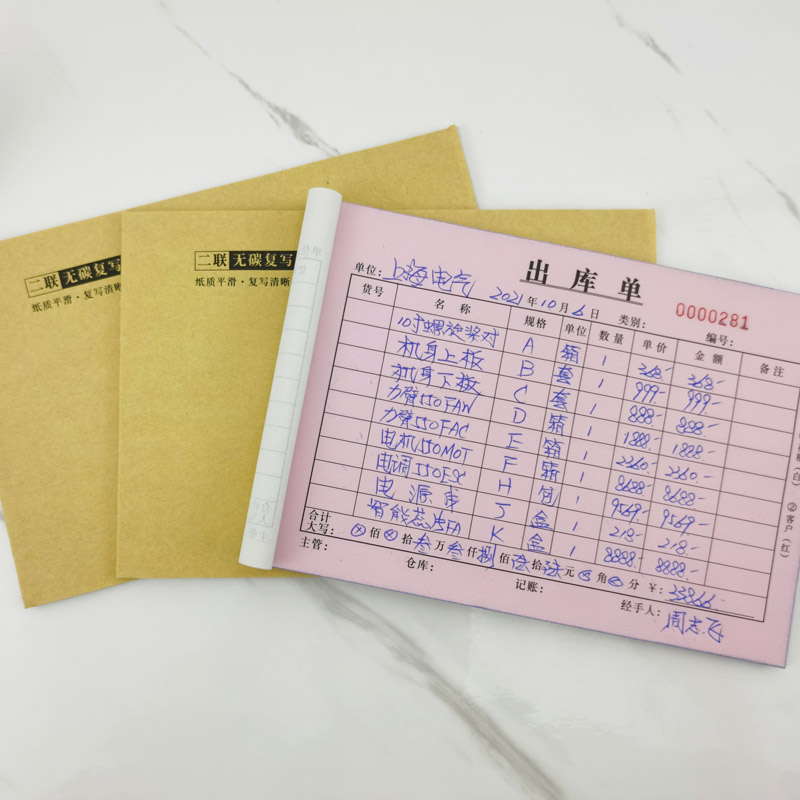 二联 无碳复写
纸质平滑·复写清晰
二联 无碳复写
纸质平滑·复写清晰
出库单
单位: 上海电气 2021年10月6日 类别: 编号: 0000281
货号 名称 规格 单位 数量 单价 金额 备注
10寸螺旋桨对 A 箱 1 368.- 368.-
机身上板 B 套 1 999.- 999.-
机身下板 C 套 1 888.- 888.-
力臂150FAW D 箱 1 1888.- 1888.-
力臂150FAC E 箱 1 2360.- 2360.-
电机150MOT F 箱 1 8688.- 8688.-
电调150ESC H 包 1 9569.- 9569.-
电源库 J 盒 1 218.- 218.-
FA K 盒 1 8888.- 8888.-
合计
大写: ⊗佰⊗拾叁万叁仟捌佰陆拾陆元⊗角⊗分 ¥: 33866.-
主管: 仓库: 记账: 经手人: 周志飞
(白) ②客户(红)